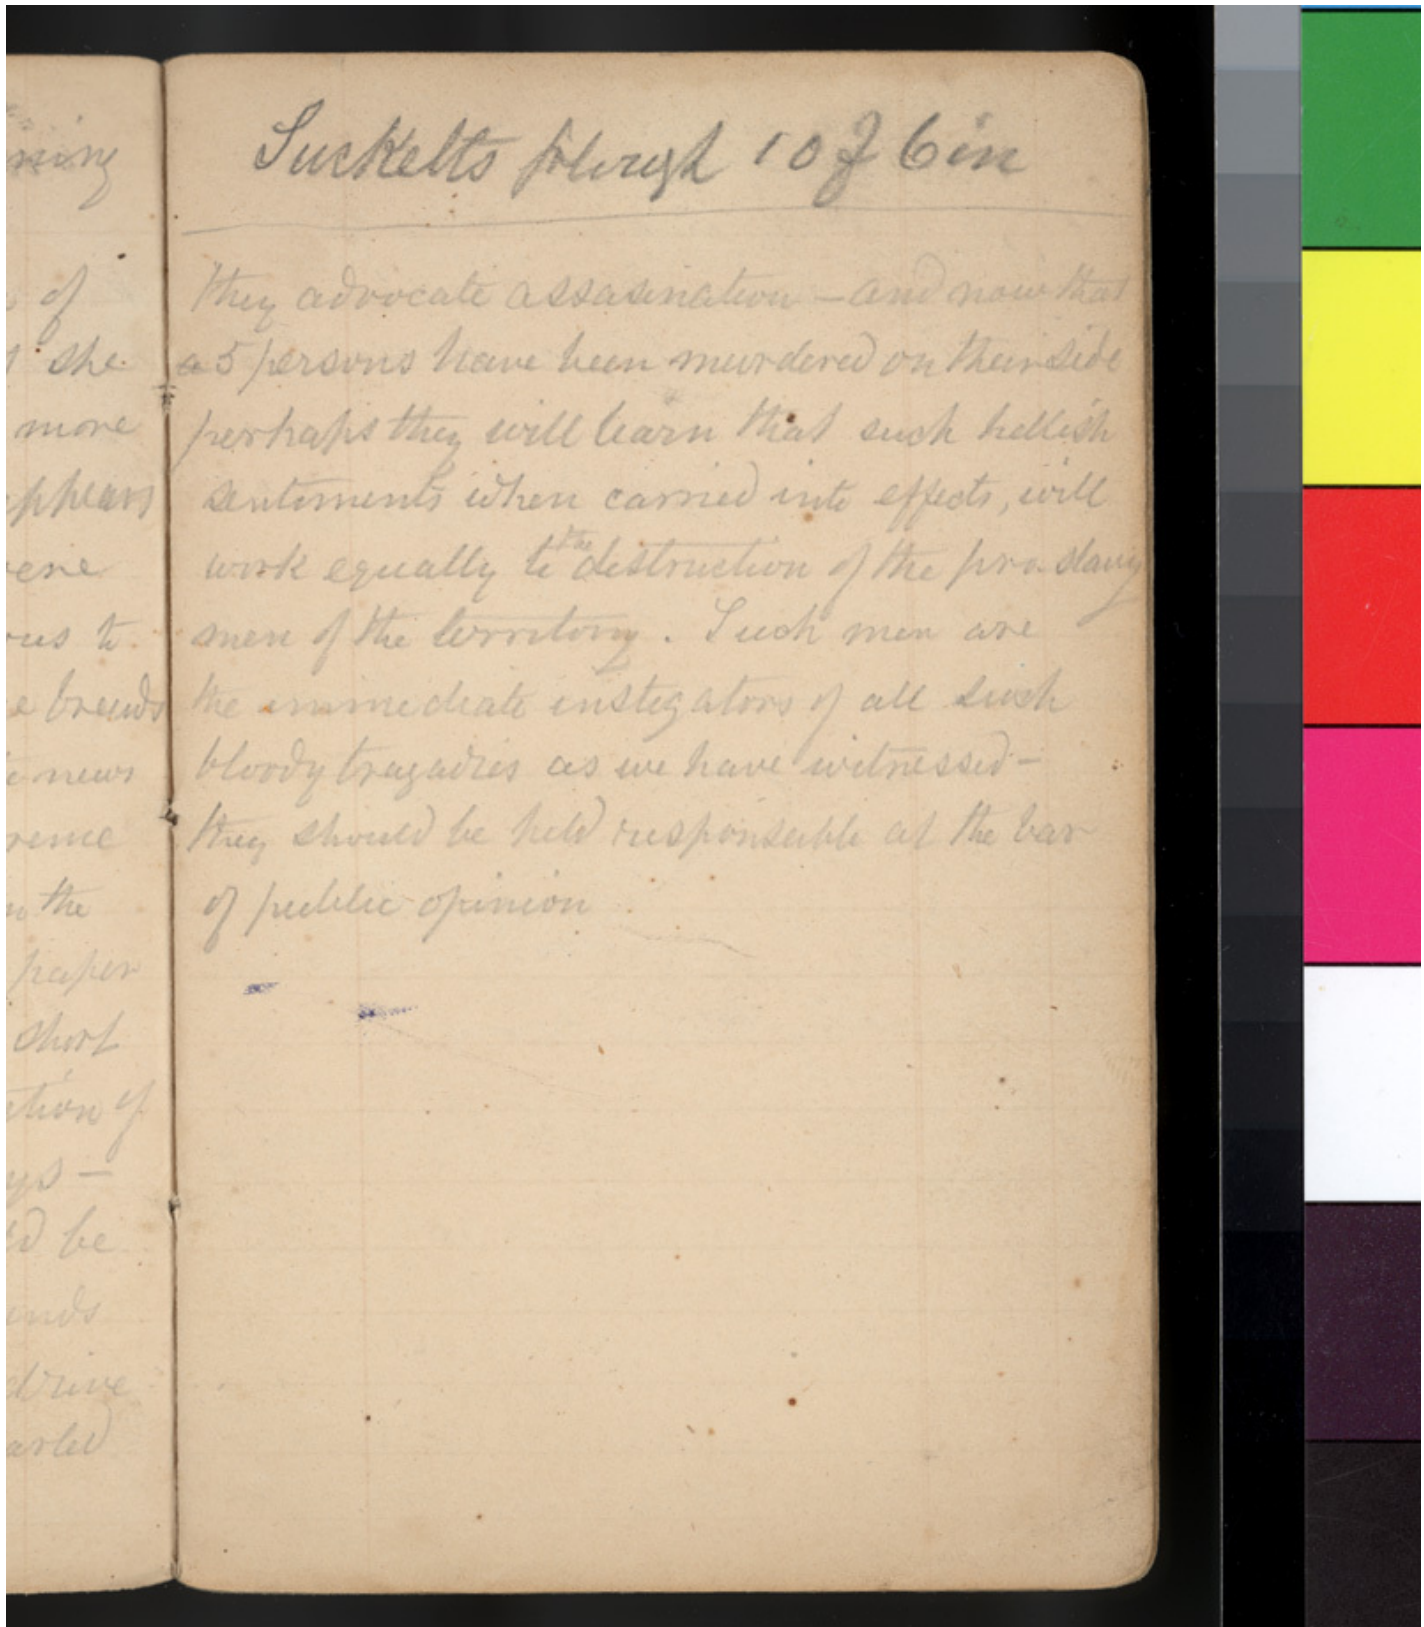 ning
of
she
more
appears
ere
ous to
e breads
news
reme
the
paper
short
ction of
ys —
d be
ends
drive
arted
Sucketts plough 10 of 6 in
they advocate assasination — and now that
a 5 persons have been murdered on their side
perhaps they will learn that such hellish
sentiments when carried into effects, will
work equally to the destruction of the pro. slavy
men of the territory. Such men are
the immediate instegators of all such
bloody tragadies as we have witnessed —
they should be held responsible at the bar
of public opinion